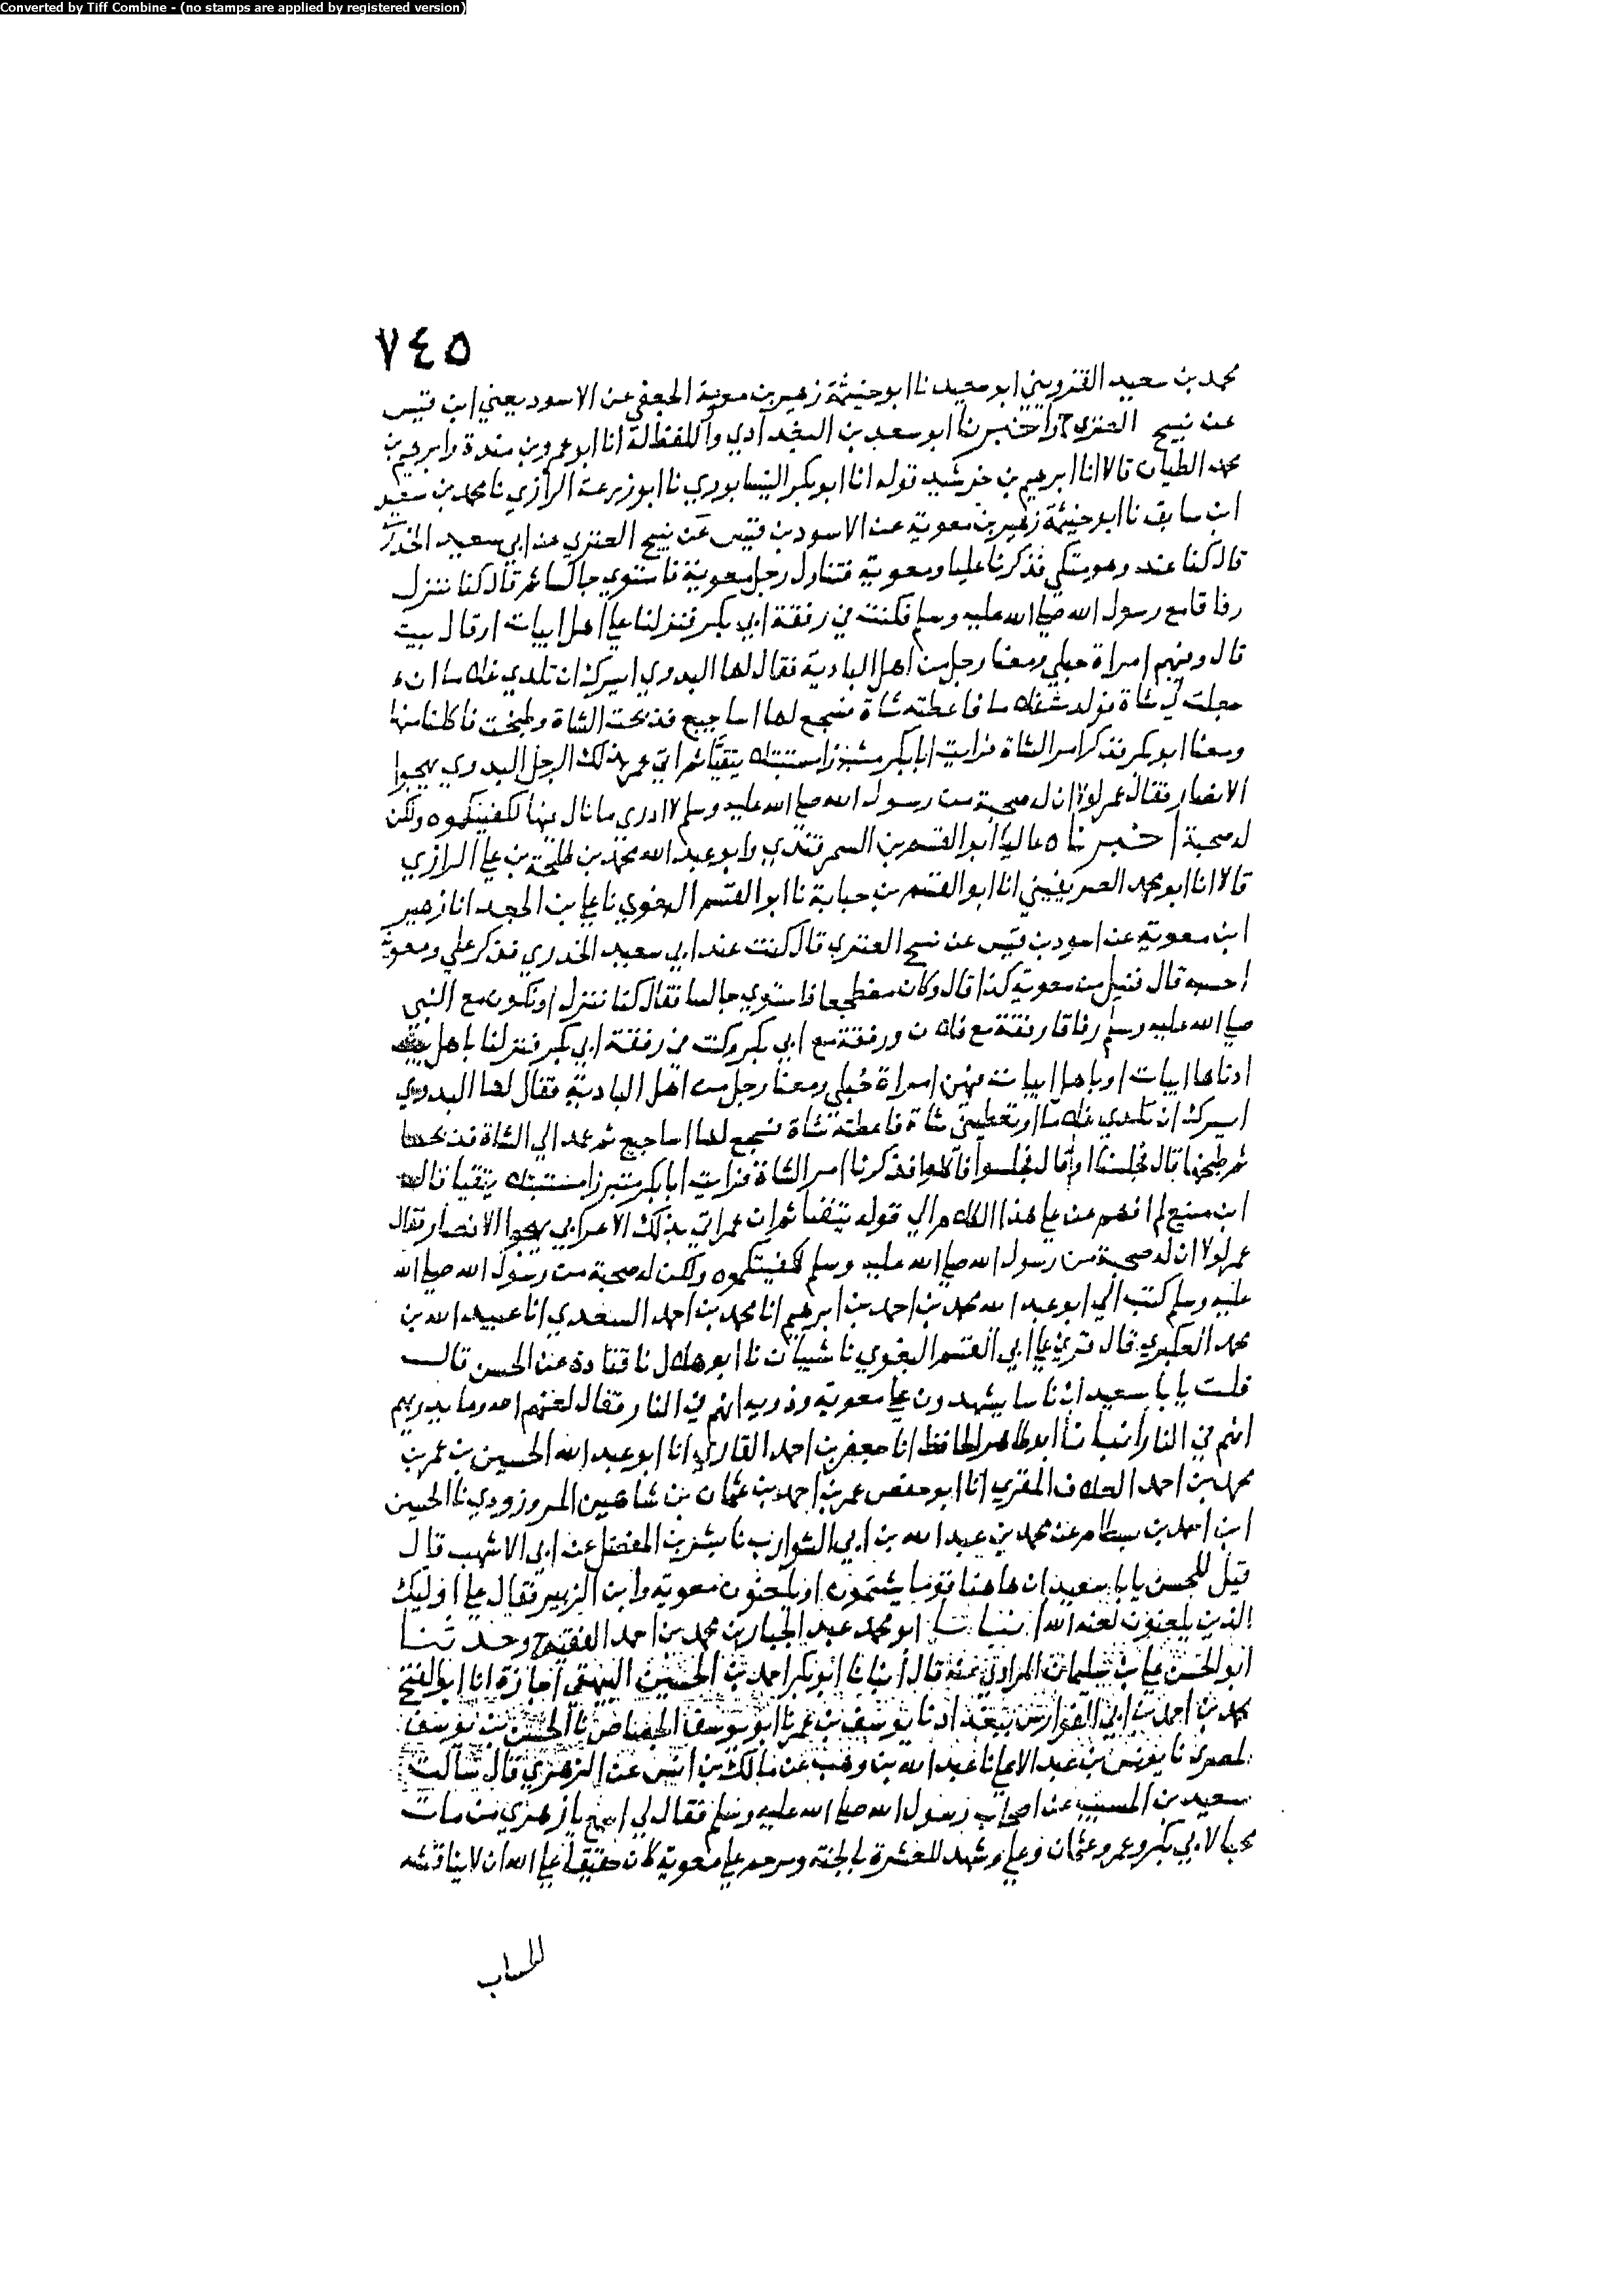 Converted by Tiff Combine - (no stamps are applied by registered version)
٧٤٥
محمد بن سعيد القزويني ابو سعيد نا ابو خيثمة زهير بن معوية الجعفي عن الاسود يعني ابن قيس
عن نبيح العنزي ح واخبرنا ابو سعد بن البغدادي واللفظ له انا ابو عمرو بن مندة وابرهيم بن
محمد الطيان قالا انا ابرهيم بن خرشيد قوله انا ابو بكر النيسابوري نا ابو زرعة الرازي نا محمد بن سعيد
ابن سابق نا ابو خيثمة زهير بن معوية عن الاسود بن قيس عن نبيح العنزي عن ابي سعيد الخدري
قال كنا عنده وهو متكي فذكرنا عليا ومعوية فتناول رجل معوية فاستوي جالسا ثم قال كنا ننزل
رفاقا مع رسول الله صلي الله عليه وسلم فكنت في رفقة ابي بكر فنزلنا علي اهل ابيات او قال بيت
قال وفيهم امراة حبلي ومعنا رجل من اهل البادية فقال لها البدوي ايسرك ان تلدي غلاما ان
جعلت لي شاة فولدت غلاما فاعطته شاة فسجع لها اساجيع فذبحت الشاة وطبخت فاكلنا منها
ومعنا ابو بكر فذكر امر الشاة فرايت ابا بكر متبرزا مستنبلا يتقيا ثم اتي عمر بذلك الرجل البدوي يهجوا
الانصار فقال عمر لولا ان له صحبة من رسول الله صلي الله عليه وسلم لا ادري ما نال فيها لكفيتكموه ولكن
له صحبة اخبرناه عاليا ابو القسم بن السمرقندي وابو عبد الله محمد بن طلحة بن علي الرازي
قالا انا ابو محمد الصريفيني انا ابو القسم بن حبابة نا ابو القسم البغوي نا علي بن الجعد انا زهير
ابن معوية عن اسود بن قيس عن نبيح العنزي قال كنت عند ابي سعيد الخدري فذكر علي ومعوية
احسبه قال فنيل من معوية كذا قال وكان مضطجعا فاستوي جالسا فقال كنا ننزل او نكون مع النبي
صلي الله عليه وسلم رفاقا رفقة مع فلان ورفقة مع ابي بكر وكنت في رفقة ابي بكر فنزلنا باهل بيت
ادناها ابيات او باهل ابيات فيهن امراة حبلي ومعنا رجل من اهل البادية فقال لها البدوي
ايسرك ان تلدي غلاما وتعطيني شاة فاعطته شاة فسجع لها اساجيع ثم عمد الي الشاة فذبحها
ثم طبخها قال فجلسنا او قال فجلسوا فاكلوا فذكرنا امر الشاة فرايت ابا بكر متبرزا مستنبلا يتقيا قال
ابن منيع لم افهم عن علي هذا الكلام الي قوله يتقيا ثم ان عمر اتي بذلك الاعرابي يهجوا الانصار فقال
عمر لولا ان له صحبة من رسول الله صلي الله عليه وسلم لكفيتكموه ولكن له صحبة من رسول الله صلي الله
عليه وسلم كتب الي ابو عبد الله محمد بن احمد بن ابرهيم انا محمد بن احمد السعدي انا عبيد الله بن
محمد العكبري قال قري علي ابي القسم البغوي نا شيبان نا ابو هلال نا قتادة عن الحسن قال
قلت يابا سعيد ان ناسا يشهدون علي معوية وذويه انهم في النار فقال لعنهم الله وما يدريهم
انهم في النار انبانا ابو طاهر الحافظ انا جعفر بن احمد القاري انا ابو عبد الله الحسين بن عمر بن
محمد بن احمد العلاف المقري انا ابو حفص عمر بن احمد بن عثمان بن شاهين المروزودي نا الحسين
ابن احمد بن بسطام عن محمد بن عبد الله بن ابي الشوارب نا بشر بن المفضل عن ابي الاشهب قال
قيل للحسن يابا سعيد ان هاهنا قوما يشتمون او يلعنون معوية وابن الزبير فقال علي اوليك
الذين يلعنون لعنه الله انبانا ابو محمد عبد الجبار بن محمد بن احمد الفقيه ح وحدثنا
ابو الحسن علي بن سليمان المرادي عنه قال انبانا ابو بكر احمد بن الحسين البيهقي اجازة انا ابو الفتح
محمد بن احمد بن ابي الفوارس ببغداد نا يوسف بن عمر نا ابو يوسف الجصاص نا الحسن بن يوسف
المصري نا يونس بن عبد الاعلي نا عبد الله بن وهب عن مالك بن انس عن الزهري قال سالت
سعيد بن المسيب عن اصحاب رسول الله صلي الله عليه وسلم فقال لي اسمع يا زهري من مات
محبا لابي بكر وعمر وعثمان وعلي وشهد للعشرة بالجنة وترحم علي معوية كان حقيقا علي الله ان لا يناقشه
الحساب